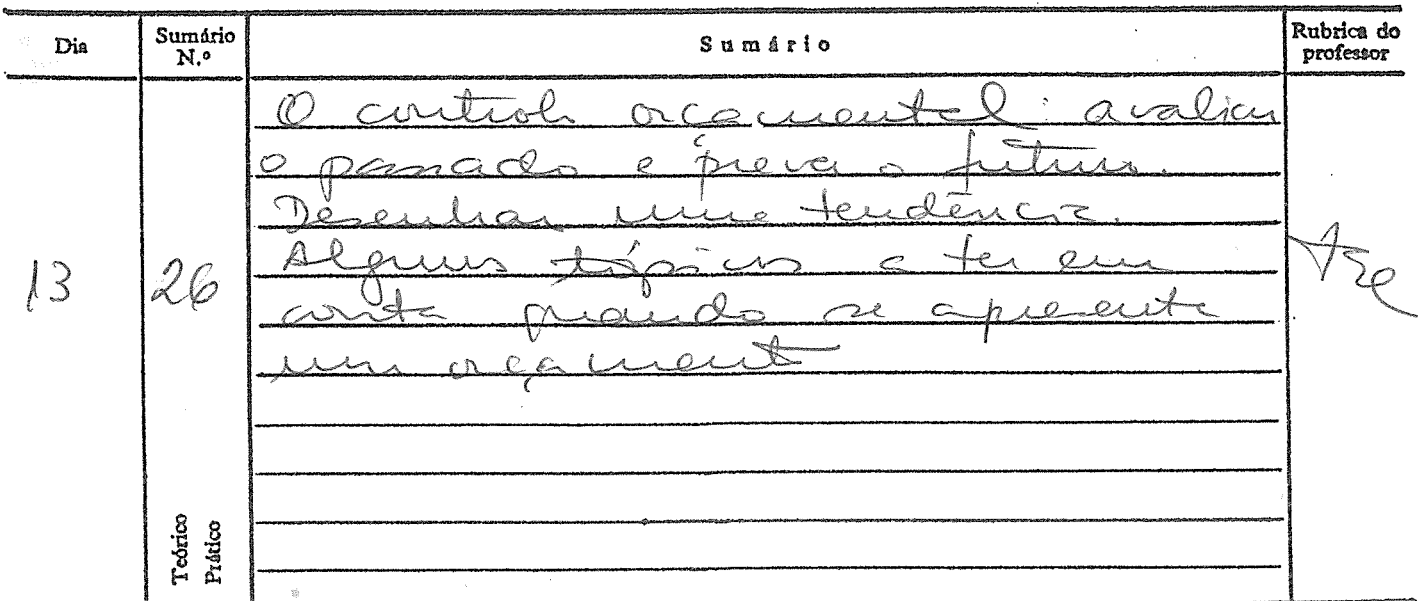 Dia
Sumário N.º
Sumário
Rubrica do professor
13
26
O controle orçamental: avaliar
o passado e prever o futuro.
Desenhar uma tendência.
Alguns tópicos a ter em
conta quando se apresenta
um orçamento
Teórico
Prático